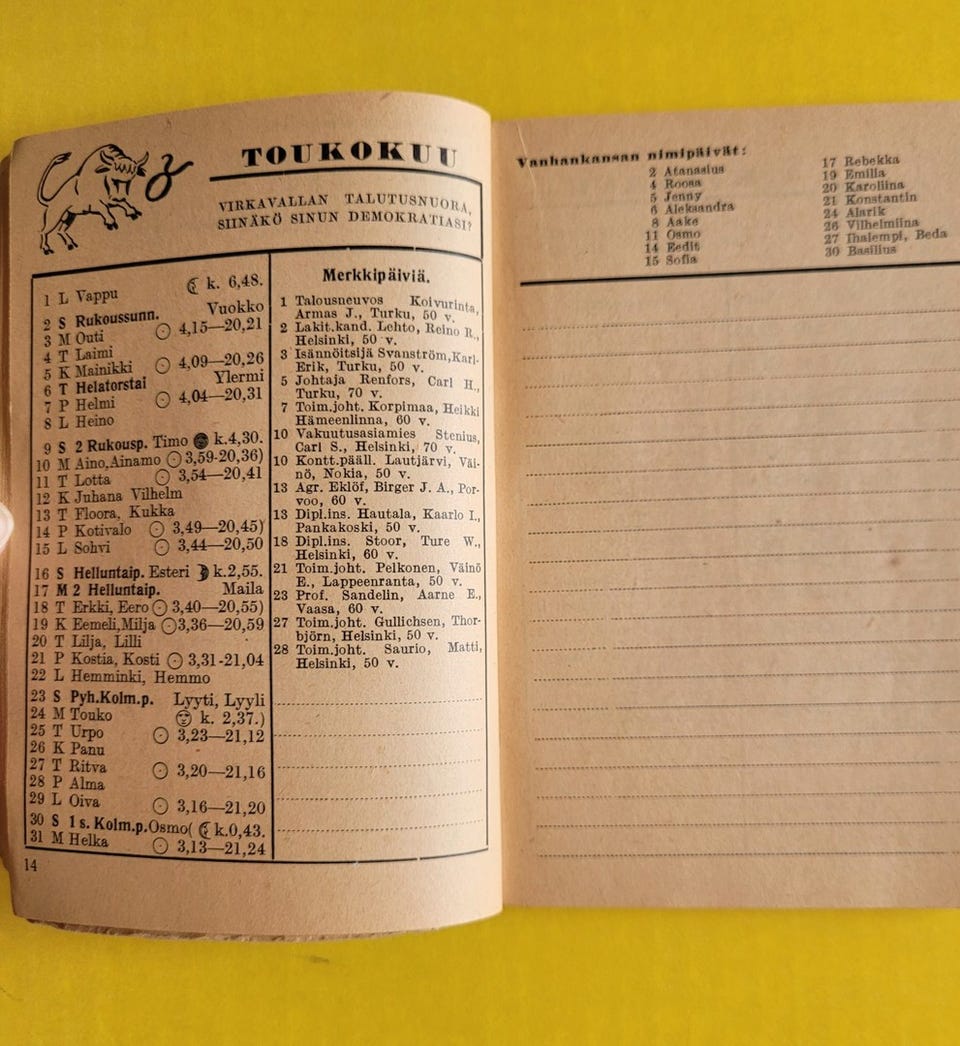 TOUKOKUU
VIRKAVALLAN TALUTUSNUORA,
SIINÄKÖ SINUN DEMOKRATIASI?
1 L Vappu k. 6,48.
2 S Rukoussunn. Vuokko
3 M Outi 4,15—20,21
4 T Laimi
5 K Mainikki 4,09—20,26
6 T Helatorstai Ylermi
7 P Helmi 4,04—20,31
8 L Heino
9 S 2 Rukousp. Timo k.4,30.
10 M Aino,Ainamo 3,59-20,36)
11 T Lotta 3,54—20,41
12 K Juhana Vilhelm
13 T Floora, Kukka
14 P Kotivalo 3,49—20,45)
15 L Sohvi 3,44—20,50
16 S Helluntaip. Esteri k.2,55.
17 M 2 Helluntaip. Maila
18 T Erkki, Eero 3,40—20,55)
19 K Eemeli,Milja 3,36—20,59
20 T Lilja, Lilli
21 P Kostia, Kosti 3,31-21,04
22 L Hemminki, Hemmo
23 S Pyh.Kolm.p. Lyyti, Lyyli
24 M Touko k. 2,37.)
25 T Urpo 3,23—21,12
26 K Panu
27 T Ritva 3,20—21,16
28 P Alma
29 L Oiva 3,16—21,20
30 S 1 s. Kolm.p.Osmo( k.0,43.
31 M Helka 3,13—21,24
14
Merkkipäiviä.
1 Talousneuvos Koivurinta,
Armas J., Turku, 50 v.
2 Lakit.kand. Lehto, Reino R.,
Helsinki, 50 v.
3 Isännöitsijä Svanström,Karl-
Erik, Turku, 50 v.
5 Johtaja Renfors, Carl H.,
Turku, 70 v.
7 Toim.joht. Korpimaa, Heikki
Hämeenlinna, 60 v.
10 Vakuutusasiamies Stenius,
Carl S., Helsinki, 70 v.
10 Kontt.pääll. Lautjärvi, Väi-
nö, Nokia, 50 v.
13 Agr. Eklöf, Birger J. A., Por-
voo, 60 v.
13 Dipl.ins. Hautala, Kaarlo I.,
Pankakoski, 50 v.
18 Dipl.ins. Stoor, Ture W.,
Helsinki, 60 v.
21 Toim.joht. Pelkonen, Väinö
E., Lappeenranta, 50 v.
23 Prof. Sandelin, Aarne E.,
Vaasa, 60 v.
27 Toim.joht. Gullichsen, Thor-
björn, Helsinki, 50 v.
28 Toim.joht. Saurio, Matti,
Helsinki, 50 v.
Vanhankansan nimipäivät:
2 Atanasius
4 Roosa
5 Jenny
6 Aleksandra
8 Aake
11 Osmo
14 Eedit
15 Sofia
17 Rebekka
19 Emilia
20 Karoliina
21 Konstantin
24 Alarik
26 Vilhelmiina
27 Ihalempi, Beda
30 Basilius